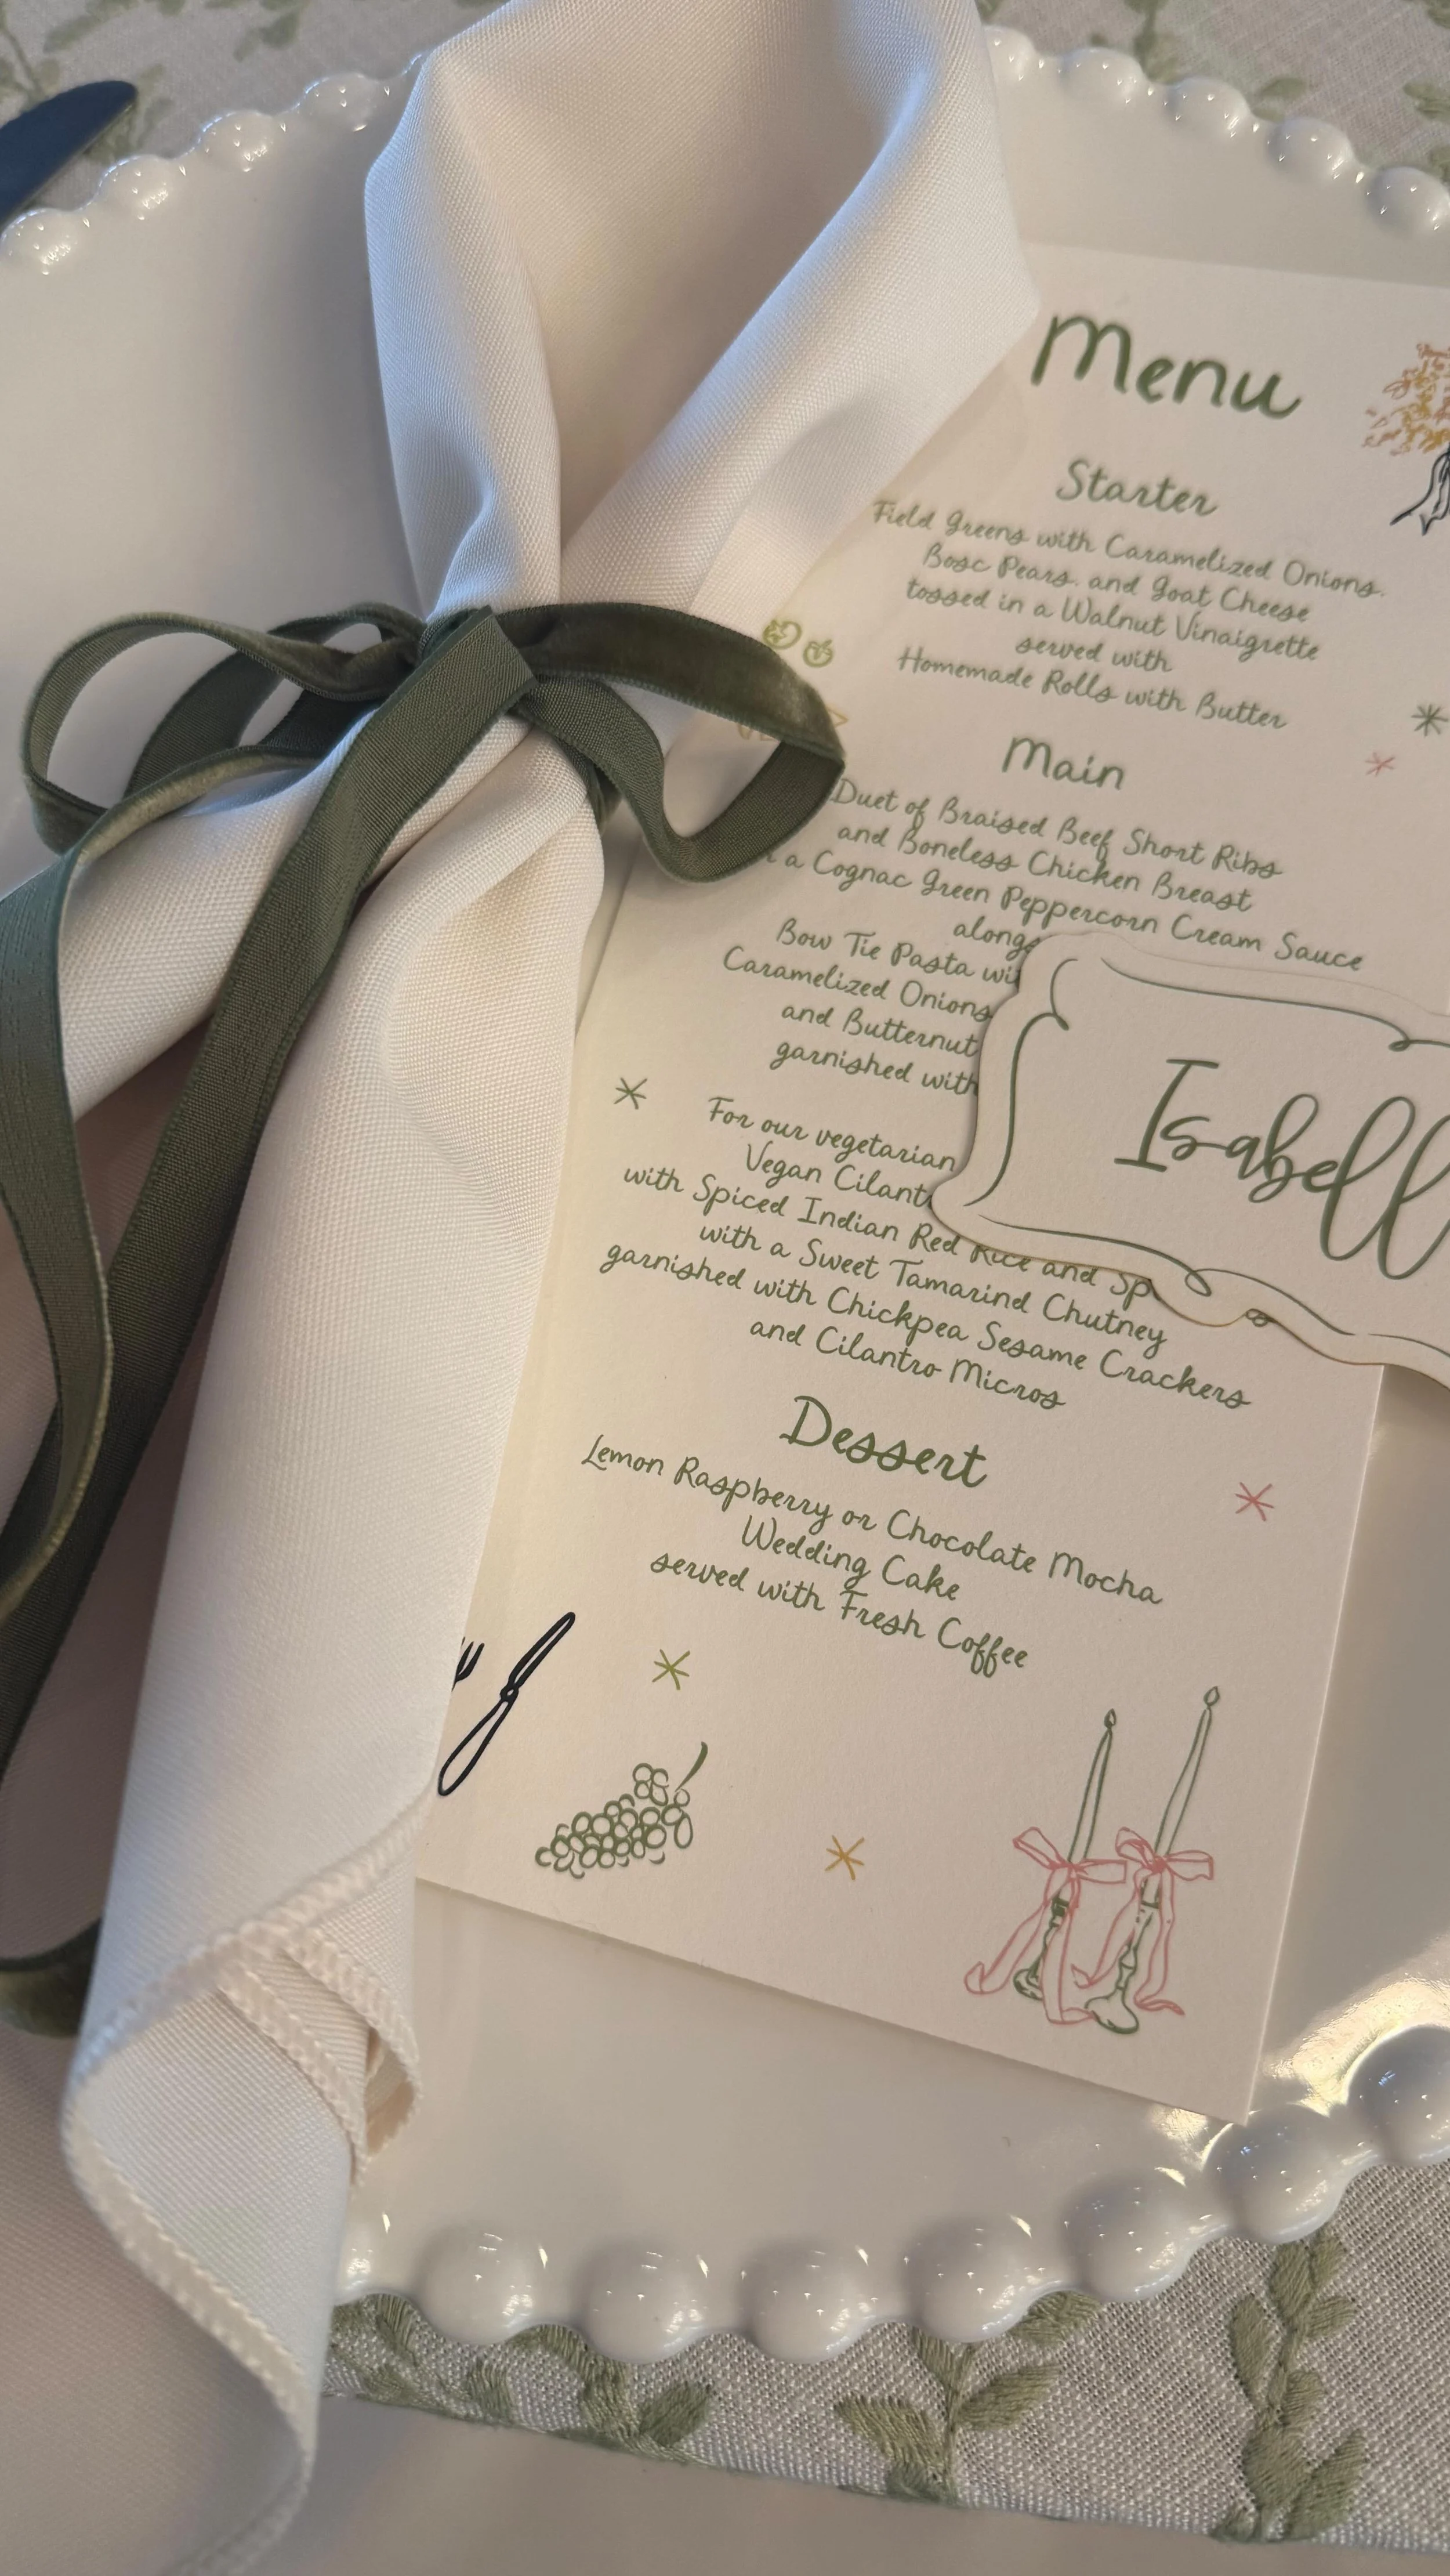 Menu
Starter
Field Greens with Caramelized Onions,
Bosc Pears, and Goat Cheese
tossed in a Walnut Vinaigrette
served with
Homemade Rolls with Butter
Main
Duet of Braised Beef Short Ribs
and Boneless Chicken Breast
a Cognac Green Peppercorn Cream Sauce
Bow Tie Pasta
Caramelized Onions
and Butternut
garnished with
For our vegetarian
Vegan
with Spiced Indian Red Rice and
with a Sweet Tamarind Chutney
garnished with Chickpea Sesame Crackers
and Cilantro Micros
Dessert
Lemon Raspberry or Chocolate Mocha
Wedding Cake
served with Fresh Coffee
Isabell